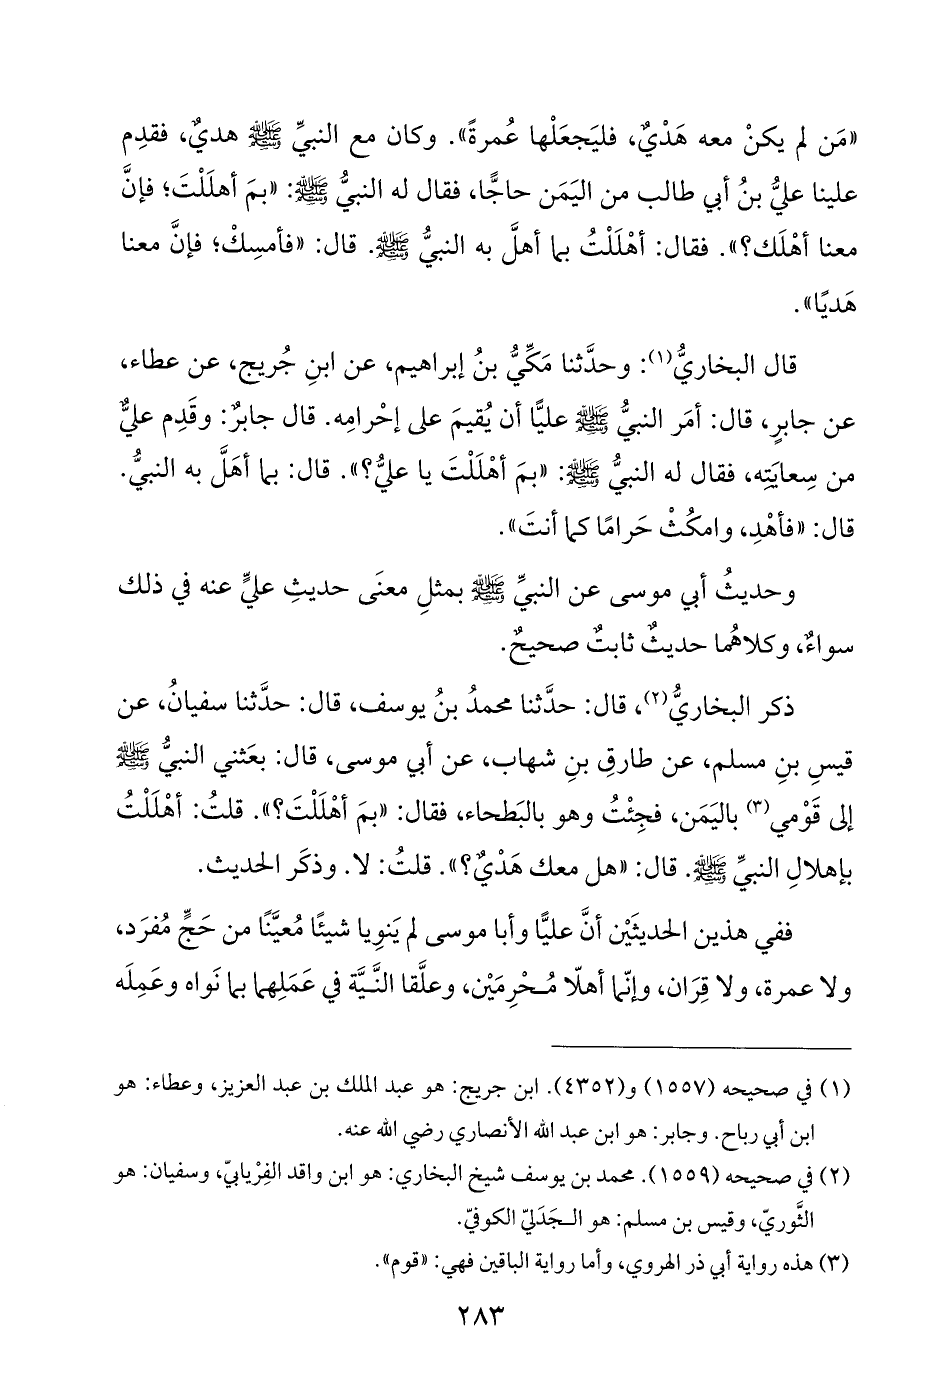 «مَن لم يكنْ معه هَدْيٌ، فليَجعَلْها عُمرةً». وكان مع النبيِّ ﷺ هديٌ، فقدِم
علينا عليُّ بنُ أبي طالب من اليَمَن حاجًّا، فقال له النبيُّ ﷺ: «بمَ أهلَلْتَ؛ فإنَّ
معنا أهْلَك؟». فقال: أهْلَلْتُ بما أهلَّ به النبيُّ ﷺ. قال: «فأمسِكْ؛ فإنَّ معنا
هَديًا».
قال البخاريُّ(١): وحدَّثنا مَكِّيُّ بنُ إبراهيم، عن ابنِ جُريج، عن عطاء،
عن جابرٍ، قال: أمَر النبيُّ ﷺ عليًّا أن يُقيمَ على إحْرامِه. قال جابرٌ: وقَدِم عليٌّ
من سِعايَتِه، فقال له النبيُّ ﷺ: «بمَ أهْلَلْتَ يا عليُّ؟». قال: بما أهَلَّ به النبيُّ.
قال: «فأهْدِ، وامكُثْ حَرامًا كما أنتَ».
وحديثُ أبي موسى عن النبيِّ ﷺ بمثلِ معنَى حديثِ عليٍّ عنه في ذلك
سواءٌ، وكلاهُما حديثٌ ثابتٌ صحيحٌ.
ذكر البخاريُّ(٢)، قال: حدَّثنا محمدُ بنُ يوسف، قال: حدَّثنا سفيانُ، عن
قيسِ بنِ مسلم، عن طارقِ بنِ شهاب، عن أبي موسى، قال: بعَثني النبيُّ ﷺ
إلى قَوْمي(٣) باليَمَن، فجِئْتُ وهو بالبَطحاء، فقال: «بمَ أهْلَلْتَ؟». قلتُ: أهْلَلْتُ
بإهلالِ النبيِّ ﷺ. قال: «هل معك هَدْيٌ؟». قلتُ: لا. وذكَر الحديث.
ففي هذين الحديثَيْن أنَّ عليًّا وأبا موسى لم يَنوِيا شيئًا مُعيَّنًا من حَجٍّ مُفرَد،
ولا عمرة، ولا قِرَان، وإنّما أهلّا مُحْرِمَيْن، وعلَّقا النَّيَّة في عَمَلِهما بما نَواه وعَمِلَه
(١) في صحيحه (١٥٥٧) و(٤٣٥٢). ابن جريج: هو عبد الملك بن عبد العزيز، وعطاء: هو
ابن أبي رباح. وجابر: هو ابن عبد الله الأنصاري رضي الله عنه.
(٢) في صحيحه (١٥٥٩). محمد بن يوسف شيخ البخاري: هو ابن واقد الفِرْيابيّ، وسفيان: هو
الثَّوريّ، وقيس بن مسلم: هو الجَدَليّ الكوفيّ.
(٣) هذه رواية أبي ذر الهروي، وأما رواية الباقين فهي: «قوم».
٢٨٣